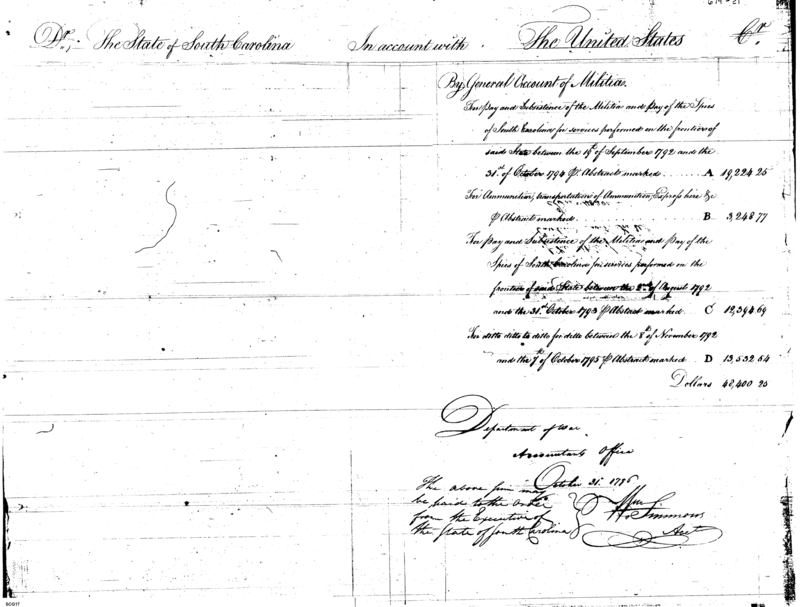 Dr. The State of South Carolina In account with The United States Cr.
By General Account of Militia.
For Pay and Subsistence of the Militia and Pay of the Spies
of South Carolina for services performed on the frontiers of
said State between the 19th of September 1792 and the
31st of October 1794 ⅌ Abstract marked A 19,224 25
For Ammunition, transportation of Ammunition, Express hire &c
⅌ Abstract marked B. 3,248 77
For Pay and Subsistence of the Militia and Pay of the
Spies of South Carolina for services performed on the
frontiers of said State between the of August 1792
and the 31st October 1793 ⅌ Abstract marked. C 12,394 69
For ditto ditto to ditto for ditto between the 8th of November 1792
and the 7th of October 1795 ⅌ Abstract marked D 13,532 54
Dollars 48,400 25
Department of War
Accountants Office
October 31st 1796
The above sum may
be paid to the order
from the Executive of
the State of South Carolina
Wm Simmons
Acct
SC017